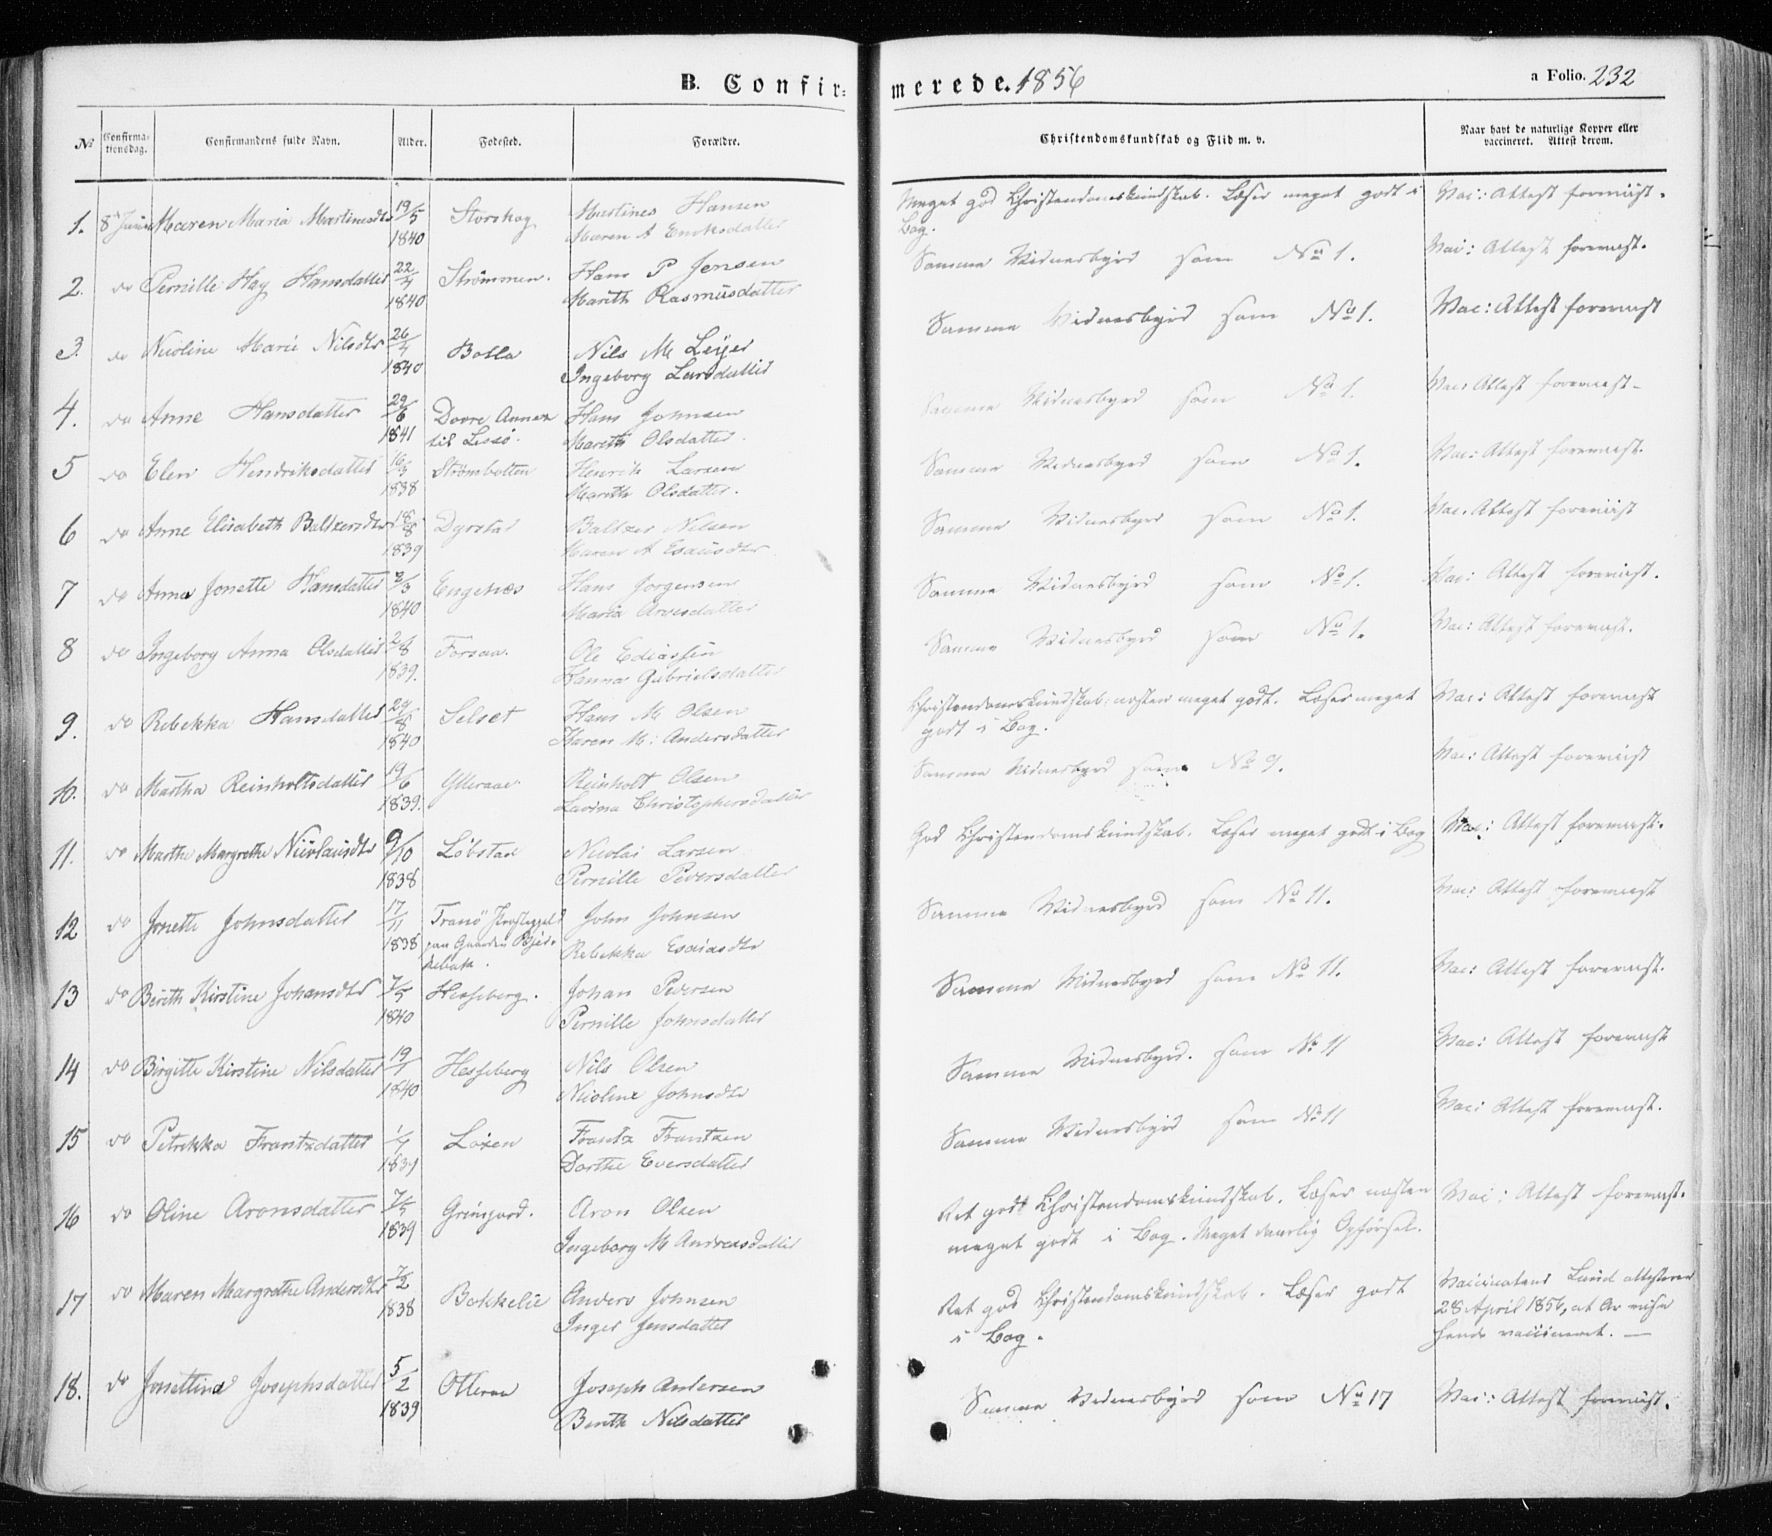 B. Confirmerede. 1856
a Folio. 232
No Confirmationsdag. Confirmandens fulde Navn. Alder. Fødested. Forældre. Christendomskundskab og Flid m. v. Naar havt de naturlige Kopper eller vaccineret. Attest derom.
1. 8de Juni Maren Maria Martinusdtr 19/5 1840 Storskog Martines Hansen Meget god Christendomskundskab. Læser meget godt i Vac: Attest foreviist.
Maren A Enoksdatter Bog.
2. do Pernille Hay Hansdatter 22/4 1840 Strømmen. Hans P Jensen Samme Vidnesbyrd som No 1. Vac: Attest foreviist.
Marith Rasmusdatter
3. do Nicoline Marie Nilsdtr 26/4 1840 Bolla Nils M Leyer Samme Vidnesbyrd som No 1. Vac: Attest foreviist
Ingeborg Larsdatter
4. do Anne Hansdatter 29/6 1841 Dovre Annex Hans Johnsen Samme Vidnesbyrd som No 1. Vac: Attest foreviist
til Lessø. Marith Olsdatter.
5 do Elen Hendriksdatter 16/3 1838 Strømbotten Henrik Larsen Samme Vidnesbyrd som No 1. Vac: Attest foreviist.
Marith Olsdatter.
6 do Anne Elisabeth Baltzersdtr 18/8 1839 Dyrstad Baltzer Nilsen Samme Vidnesbyrd som No 1. Vac. Attest foreviist
Maren A Esausdtr
7 do Anna Jonette Hansdatter 3/3 1840 Engenes Hans Jørgensen Samme Vidnesbyrd som No 1. Vac: Attest foreviist.
Maria Arvesdatter
8 do Ingeborg Anna Olsdatter 1839. Forsaa. Ole Ediassen Samme Vidnesbyrd som No 1. Vac: Attest foreviist.
Hanna Gabrielsdatter
9. do Rebekka Hansdatter 24/8 1840 Selset Hans M Olsen Christendomskundskab: næsten meget godt. Læser meget Vac: Attest foreviist
Karen M: Andersdatter godt i Bog.
10. do Martha Reinholtsdatter 19/6 1839. Ytteraae. Reinholt Olsen Samme Vidnesbyrd som No 9. Vac: Attest foreviist
Lavina Christophersdatter
11. do Marthe Margrethe Nicolaisdtr 9/10 1838 Løbstad Nicolai Larsen God Christendomskundskab. Læser meget godt i Bog Vac: Attest foreviist.
Pernille Pedersdatter
12 do Jonette Johnsdatter 17/11 1838 Tranø Præstegjeld John Johnsen Samme Vidnesbyrd som No 11. Vac: Attest foreviist
paa Gaarden Rebekka Esaiasdtr
13 do Birith Kirstine Johansdtr 7/5 1840 Hesseberg. Johan Pedersen Samme Vidnesbyrd som No 11. Vac: Attest foreviist.
Pernille Johnsdatter
14 do Birgitte Kirstine Nilsdatter 19/1 1840 Hesseberg Nils Olsen Samme Vidnesbyrd. som No 11 Vac: Attest foreviist
Nicoline Johnsdtr
15 do Petrikka Frantzdatter 1839 Loxen Frantz Frantzen Samme Vidnesbyrd som No 11 Vac: Attest foreviist.
Dorthe Eversdatter
16 do Oline Aronsdatter 7/5 1839 Grønjord. Aron Olsen Ret godt Christendomskundskab. Læser næsten Vac: Attest foreviist.
Ingeborg M Andreasdatter meget godt i Bog. Meget daarlig Opførsel.
17 do Maren Margrethe Andersdtr 7/2 1838 Bokkelie Anders Johnsen Ret god Christendomskundskab. Læser godt Vaccinateur Lund attesterer
Inger Jensdatter i Bog. 28 April 1856, at
vaccineret.
18. do Jonettine Josephsdatter 5/2 1839 Otteraa Joseph Andersen Samme Vidnesbyrd som No 17 Vac: Attest foreviist.
Birith Nilsdatter